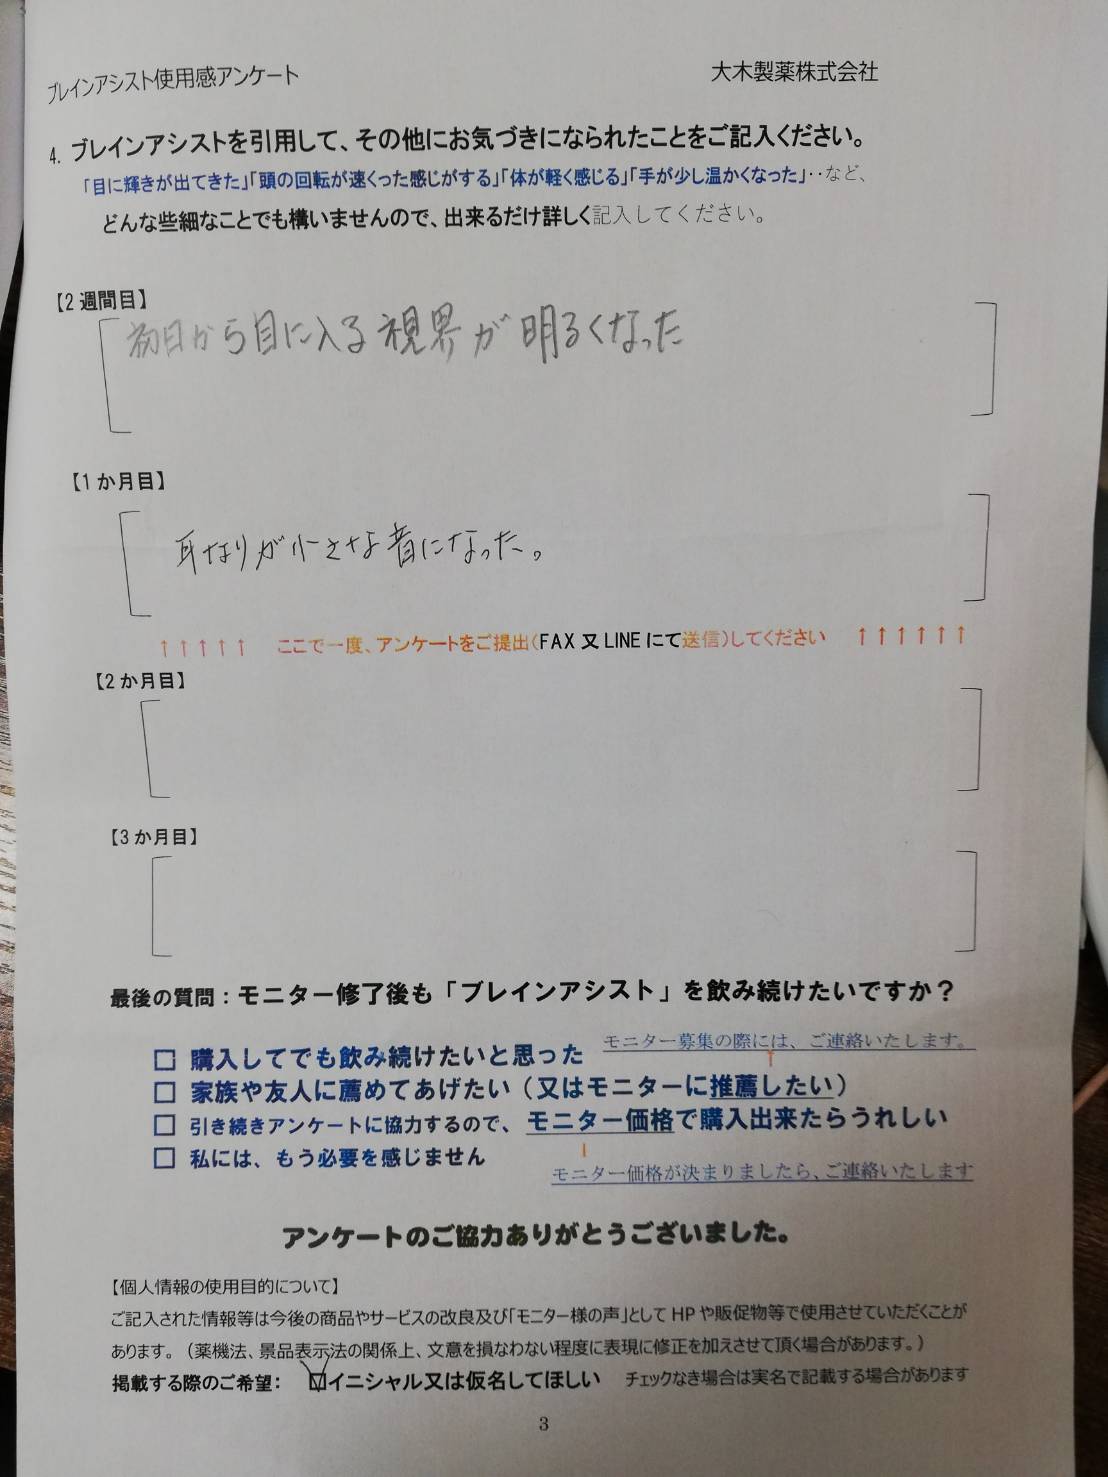 ブレインアシスト使用感アンケート
大木製薬株式会社
4. ブレインアシストを引用して、その他にお気づきになられたことをご記入ください。
「目に輝きが出てきた」「頭の回転が速くった感じがする」「体が軽く感じる」「手が少し温かくなった」‥など、
どんな些細なことでも構いませんので、出来るだけ詳しく記入してください。
【2週間目】
初日から目に入る視界が明るくなった
【1か月目】
耳なりが小さな音になった。
↑↑↑↑↑ ここで一度、アンケートをご提出(FAX又LINEにて送信)してください ↑↑↑↑↑↑
【2か月目】
【3か月目】
最後の質問:モニター修了後も「ブレインアシスト」を飲み続けたいですか?
モニター募集の際には、ご連絡いたします。
□ 購入してでも飲み続けたいと思った
□ 家族や友人に薦めてあげたい(又はモニターに推薦したい)
□ 引き続きアンケートに協力するので、モニター価格で購入出来たらうれしい
□ 私には、もう必要を感じません
モニター価格が決まりましたら、ご連絡いたします
アンケートのご協力ありがとうございました。
【個人情報の使用目的について】
ご記入された情報等は今後の商品やサービスの改良及び「モニター様の声」としてHPや販促物等で使用させていただくことが
あります。(薬機法、景品表示法の関係上、文意を損なわない程度に表現に修正を加えさせて頂く場合があります。)
掲載する際のご希望: ☑イニシャル又は仮名してほしい チェックなき場合は実名で記載する場合があります
3